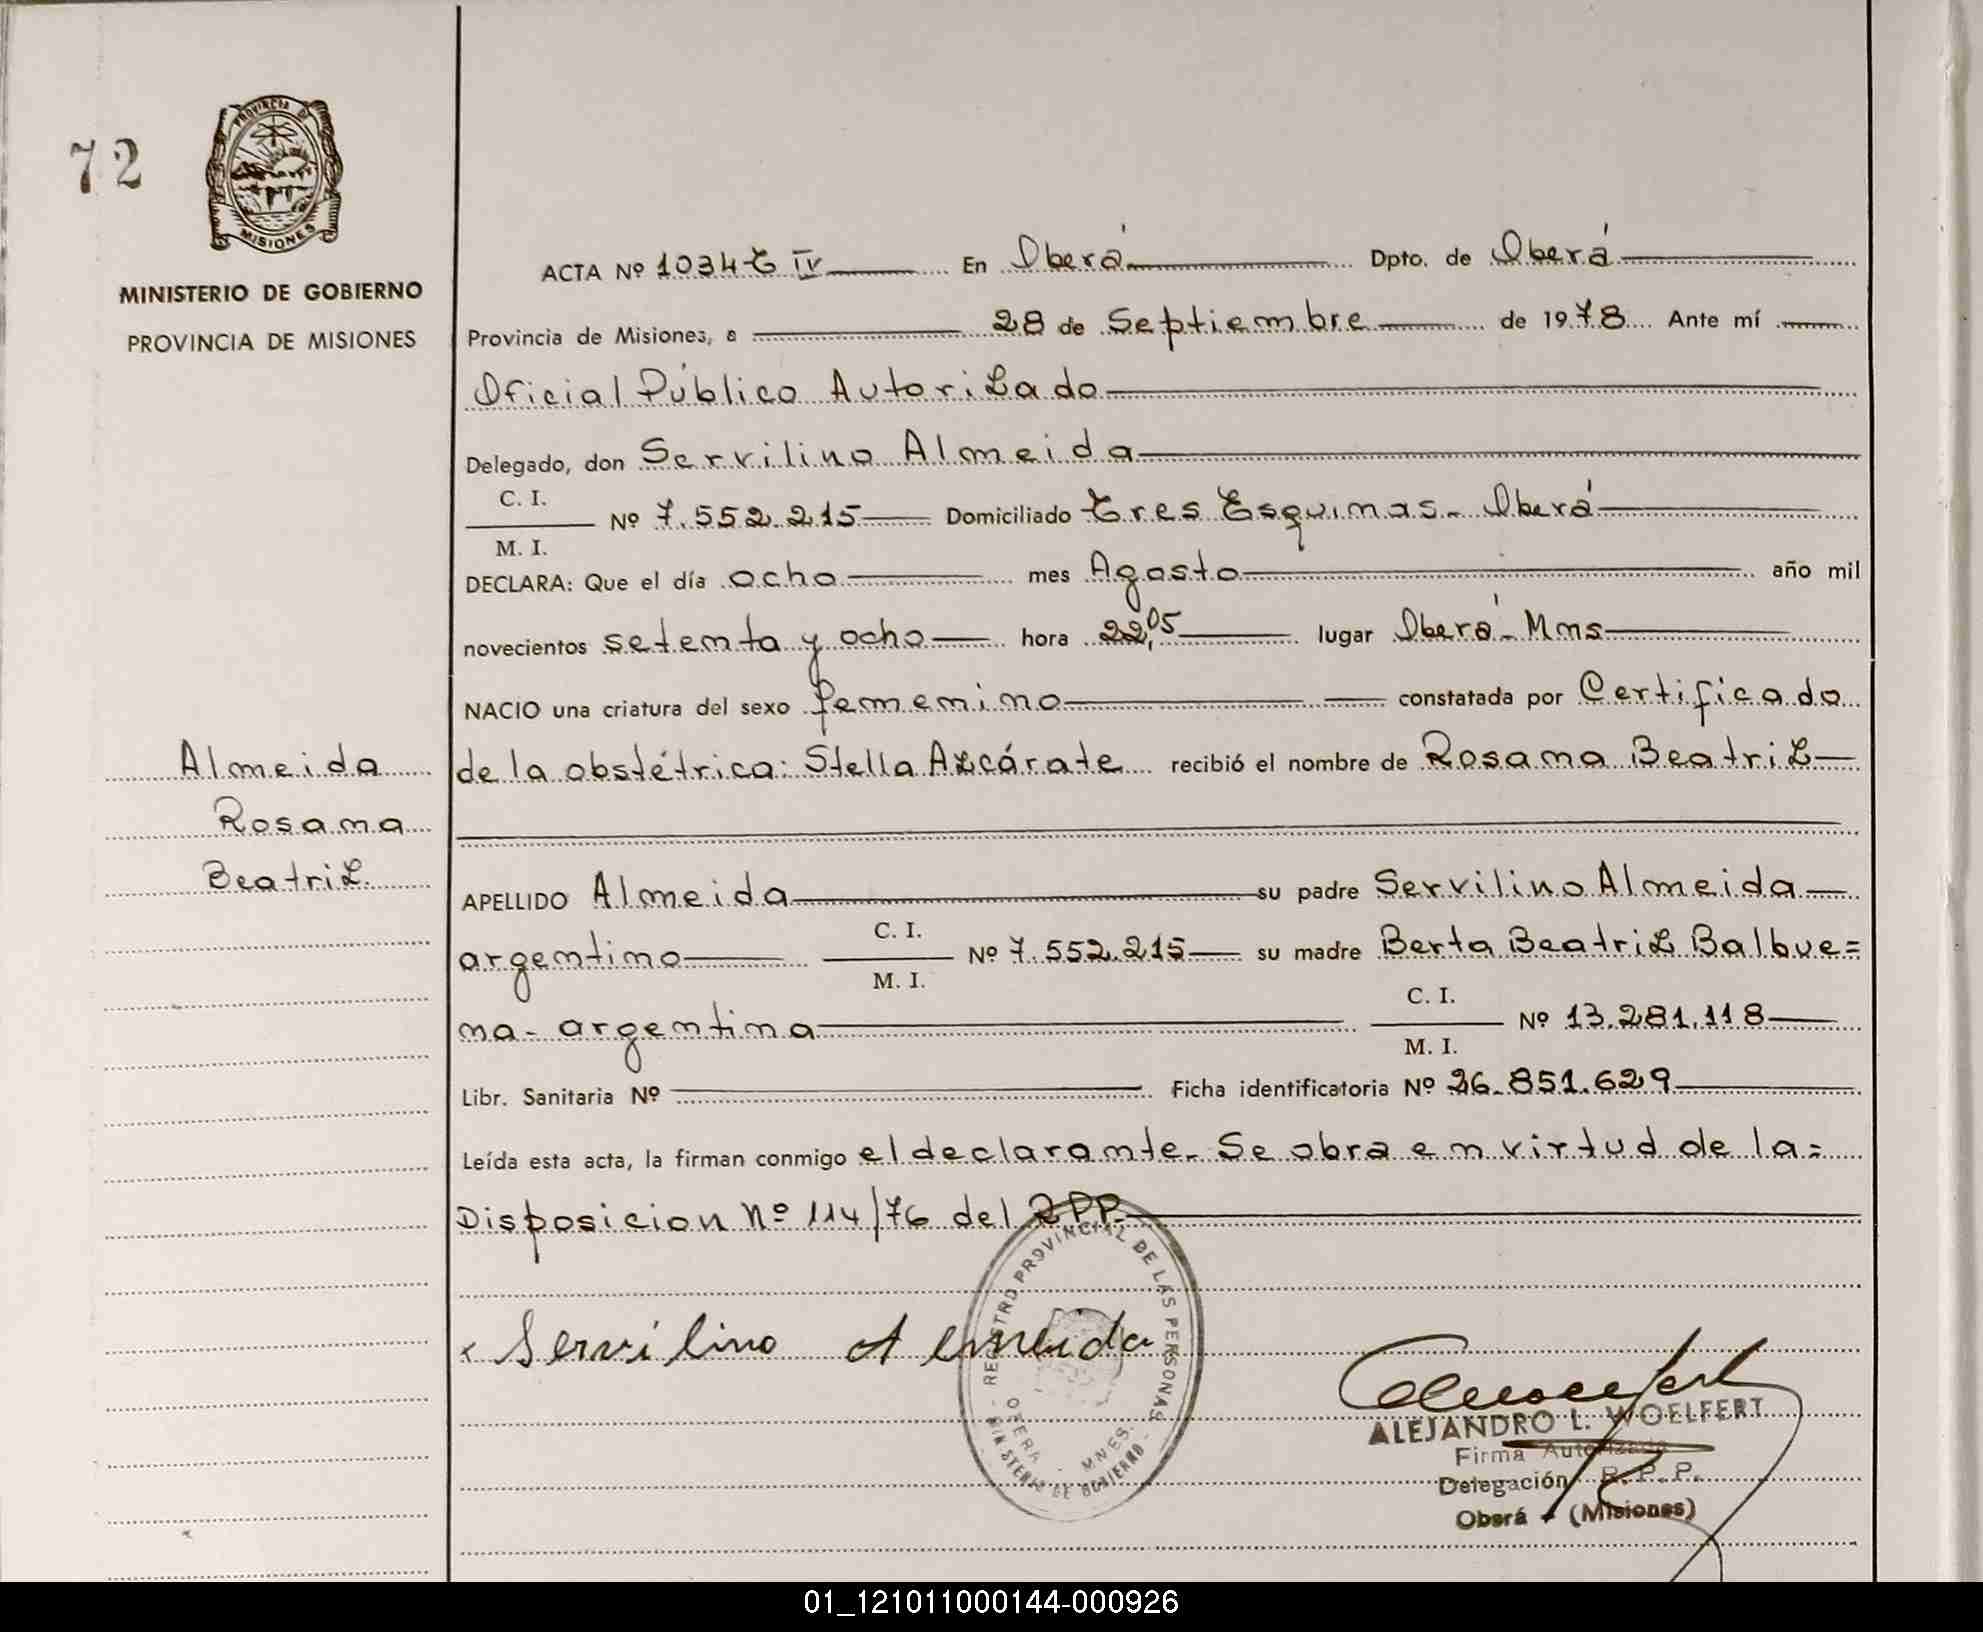 72
PROVINCIA D
MISIONES
MINISTERIO DE GOBIERNO
PROVINCIA DE MISIONES
ACTA Nº 1034 T IV En Oberá Dpto. de Oberá
Provincia de Misiones, a 28 de Septiembre de 1978 Ante mí
Oficial Público Autorizado
Delegado, don Servilino Almeida
C. I.
Nº 7.552.215 Domiciliado Tres Esquinas - Oberá
M. I.
DECLARA: Que el día ocho mes Agosto año mil
novecientos setenta y ocho hora 22,05 lugar Oberá - Mnes
NACIO una criatura del sexo femenino constatada por Certificado
de la obstétrica: Stella Azcárate recibió el nombre de Rosana Beatriz
Almeida
Rosana
Beatriz
APELLIDO Almeida su padre Servilino Almeida
C. I.
argentino Nº 7.552.215 su madre Berta Beatriz Balbue=
M. I.
C. I.
na - argentina Nº 13.281.118
M. I.
Libr. Sanitaria Nº Ficha identificatoria Nº 26.851.629
Leída esta acta, la firman conmigo el declarante. Se obra en virtud de la=
Disposicion Nº 114/76 del RPP.
REGISTRO PROVINCIAL DE LAS PERSONAS
OBERA - MNES.
MINISTERIO DE GOBIERNO
x Servilino Almeida
ALEJANDRO L. WOELFERT
Firma Autorizada
Delegación R. P. P.
Oberá - (Misiones)
01_121011000144-000926